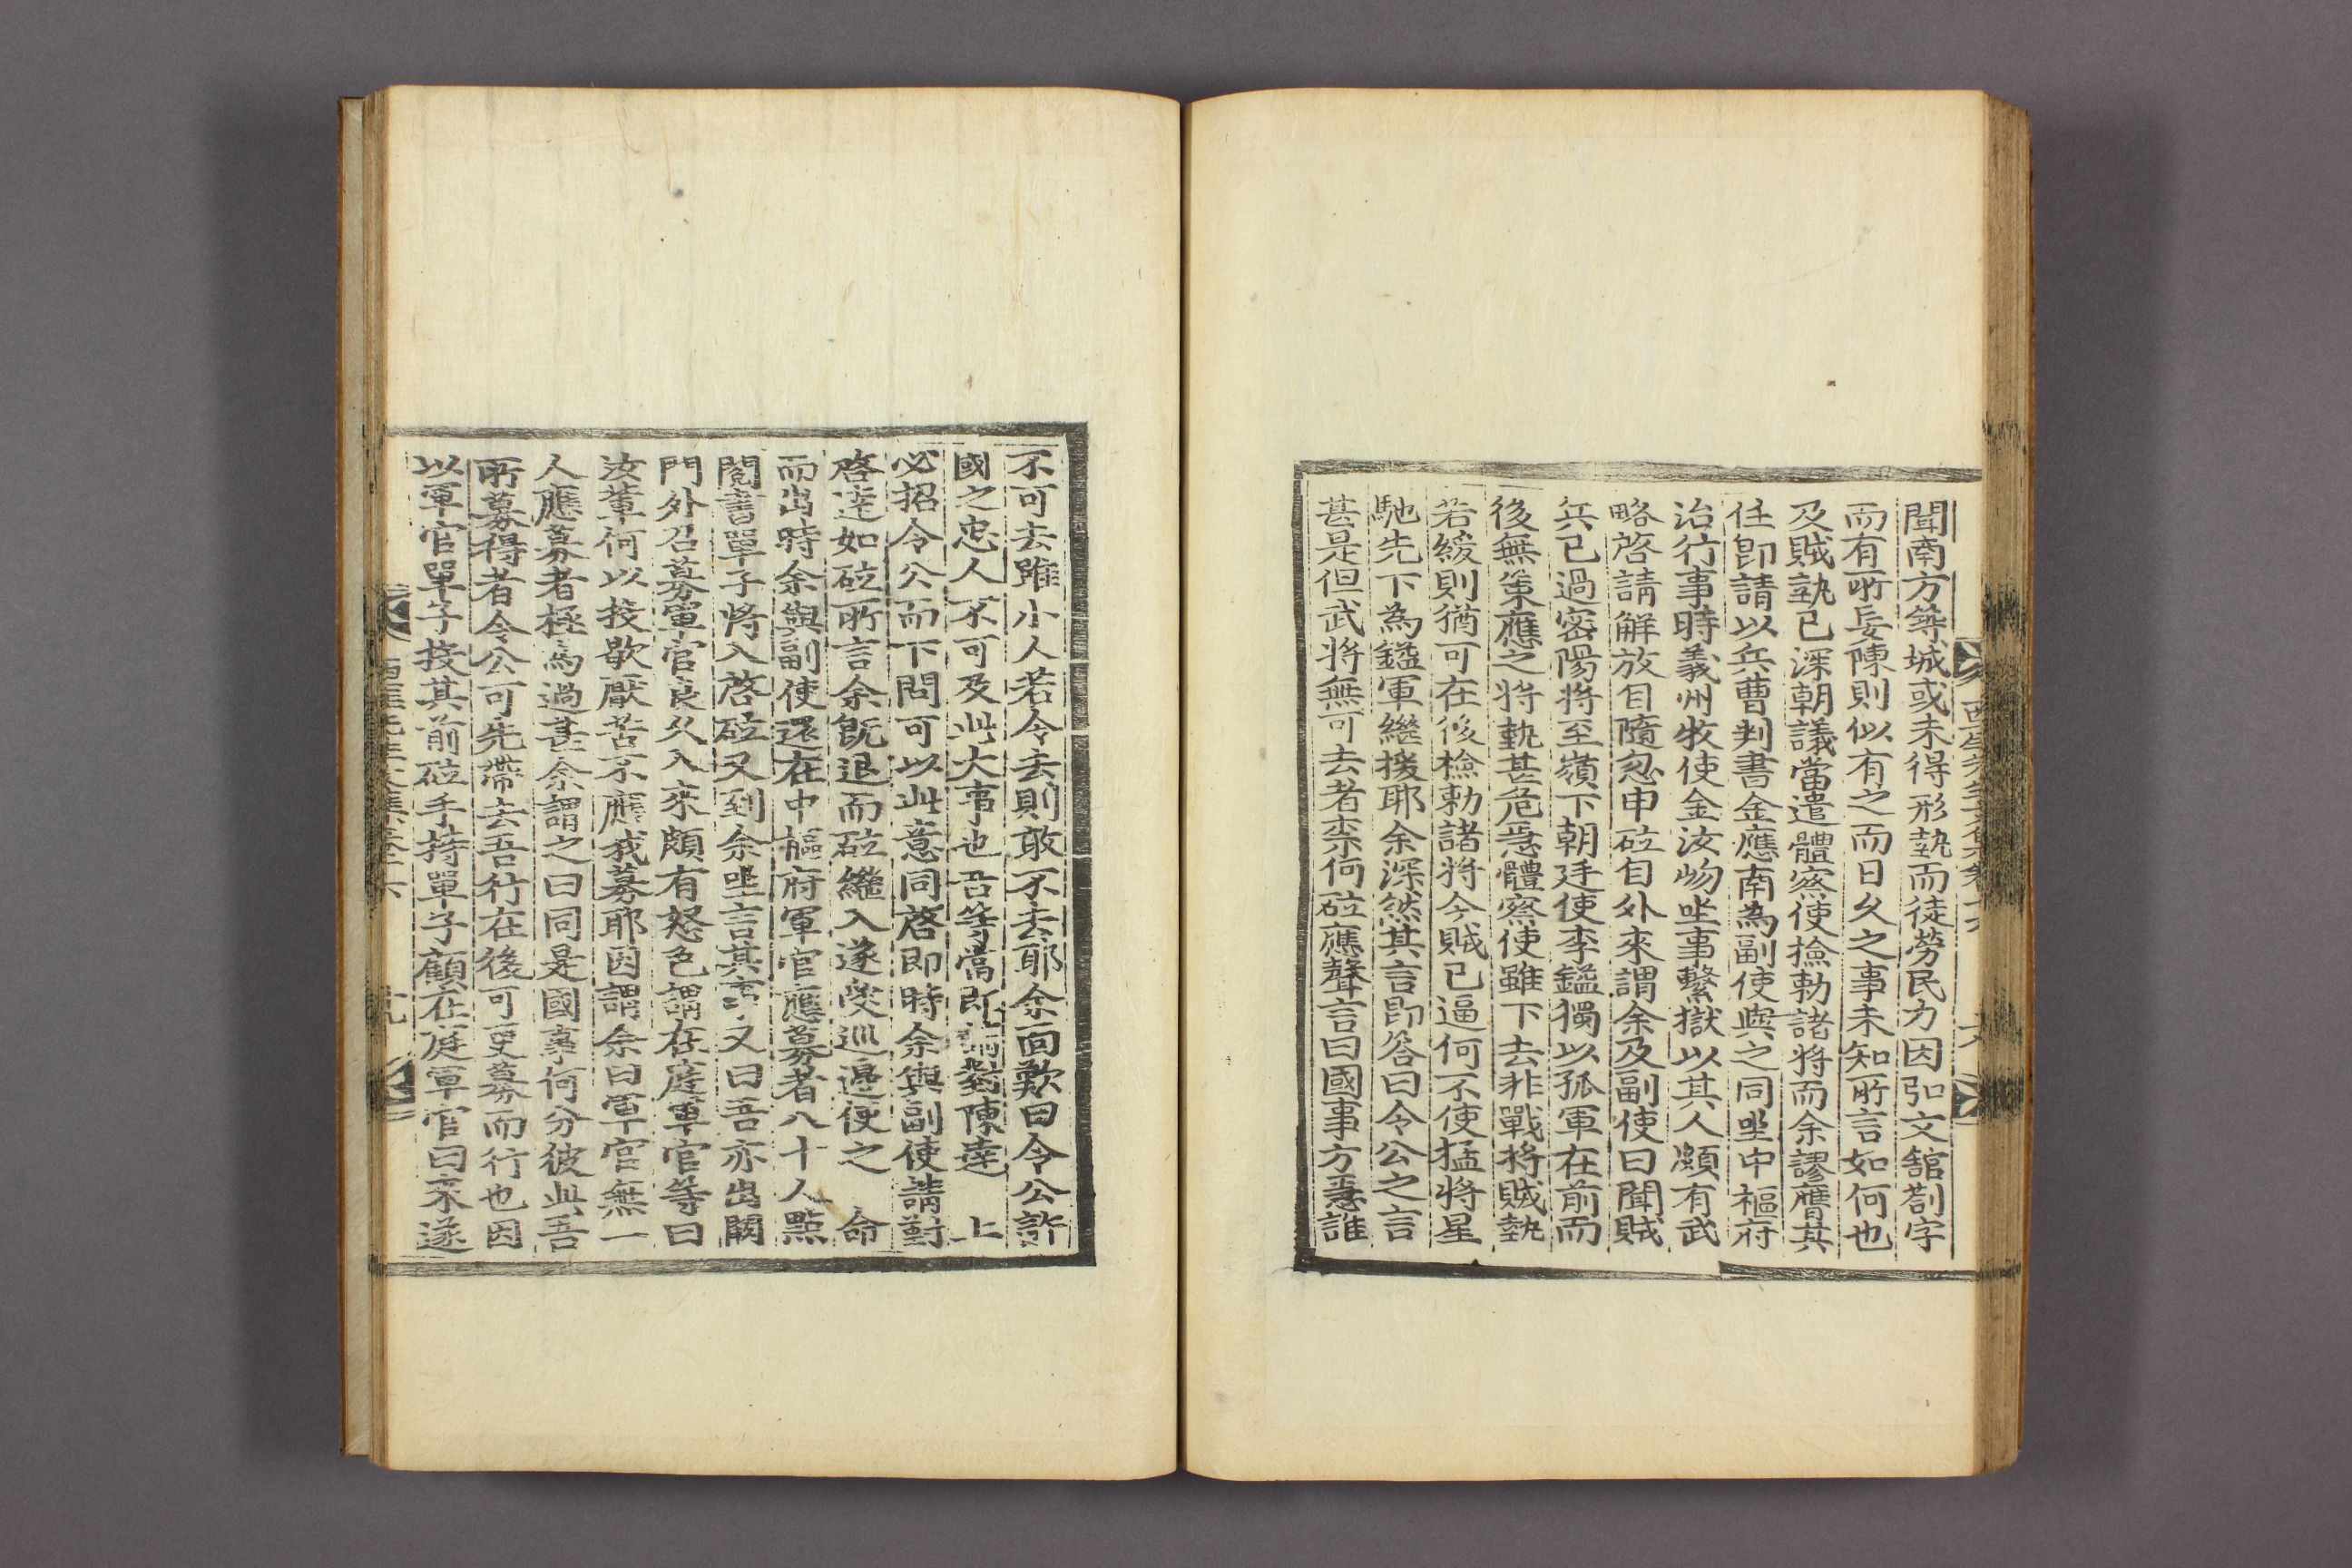 聞南方築城或未得形埶而徒勞民力因弘文館劄字
而有所妄陳則似有之而日久之事未知所言如何也
及賊埶已深朝議當遣體察使撿勅諸將而余謬膺其
任卽請以兵曹判書金應南為副使與之同坐中樞府
治行事時義州牧使金汝岉坐事繫獄以其人頗有武
略啓請解放自隨忽申砬自外來謂余及副使曰聞賊
兵已過密陽將至嶺下朝廷使李鎰獨以孤軍在前而
後無策應之將埶甚危急體察使雖下去非戰將賊埶
若緩則猶可在後檢勅諸將今賊已逼何不使猛將星
馳先下為鎰軍繼援耶余深然其言卽答曰令公之言
甚是但武將無可去者柰何砬應聲言曰國事方急誰
不可去雖小人若令去則敢不去耶余回歎曰令公許
國之忠人不可及此大事也吾等當卽請對陳達 上
必招令公而下問可以此意同啓卽時余與副使請對
啓達如砬所言余旣退而砬繼入遂受巡邊使之 命
而出時余與副使還在中樞府軍官應募者八十人點
閱書單子將入啓砬又到余坐言其事又曰吾亦出闕
門外召募軍官良久入來頗有怒色謂在庭軍官等曰
汝輩何以投歇厭苦不應我募耶因謂余曰軍官無一
人應募者極為過甚余謂之曰同是國事何分彼此吾
所募得者令公可先帶去吾行在後可更募而行也因
以軍官單子投其前砬手持單子顧在庭軍官曰來遂
西厓先生文集卷十六
十九